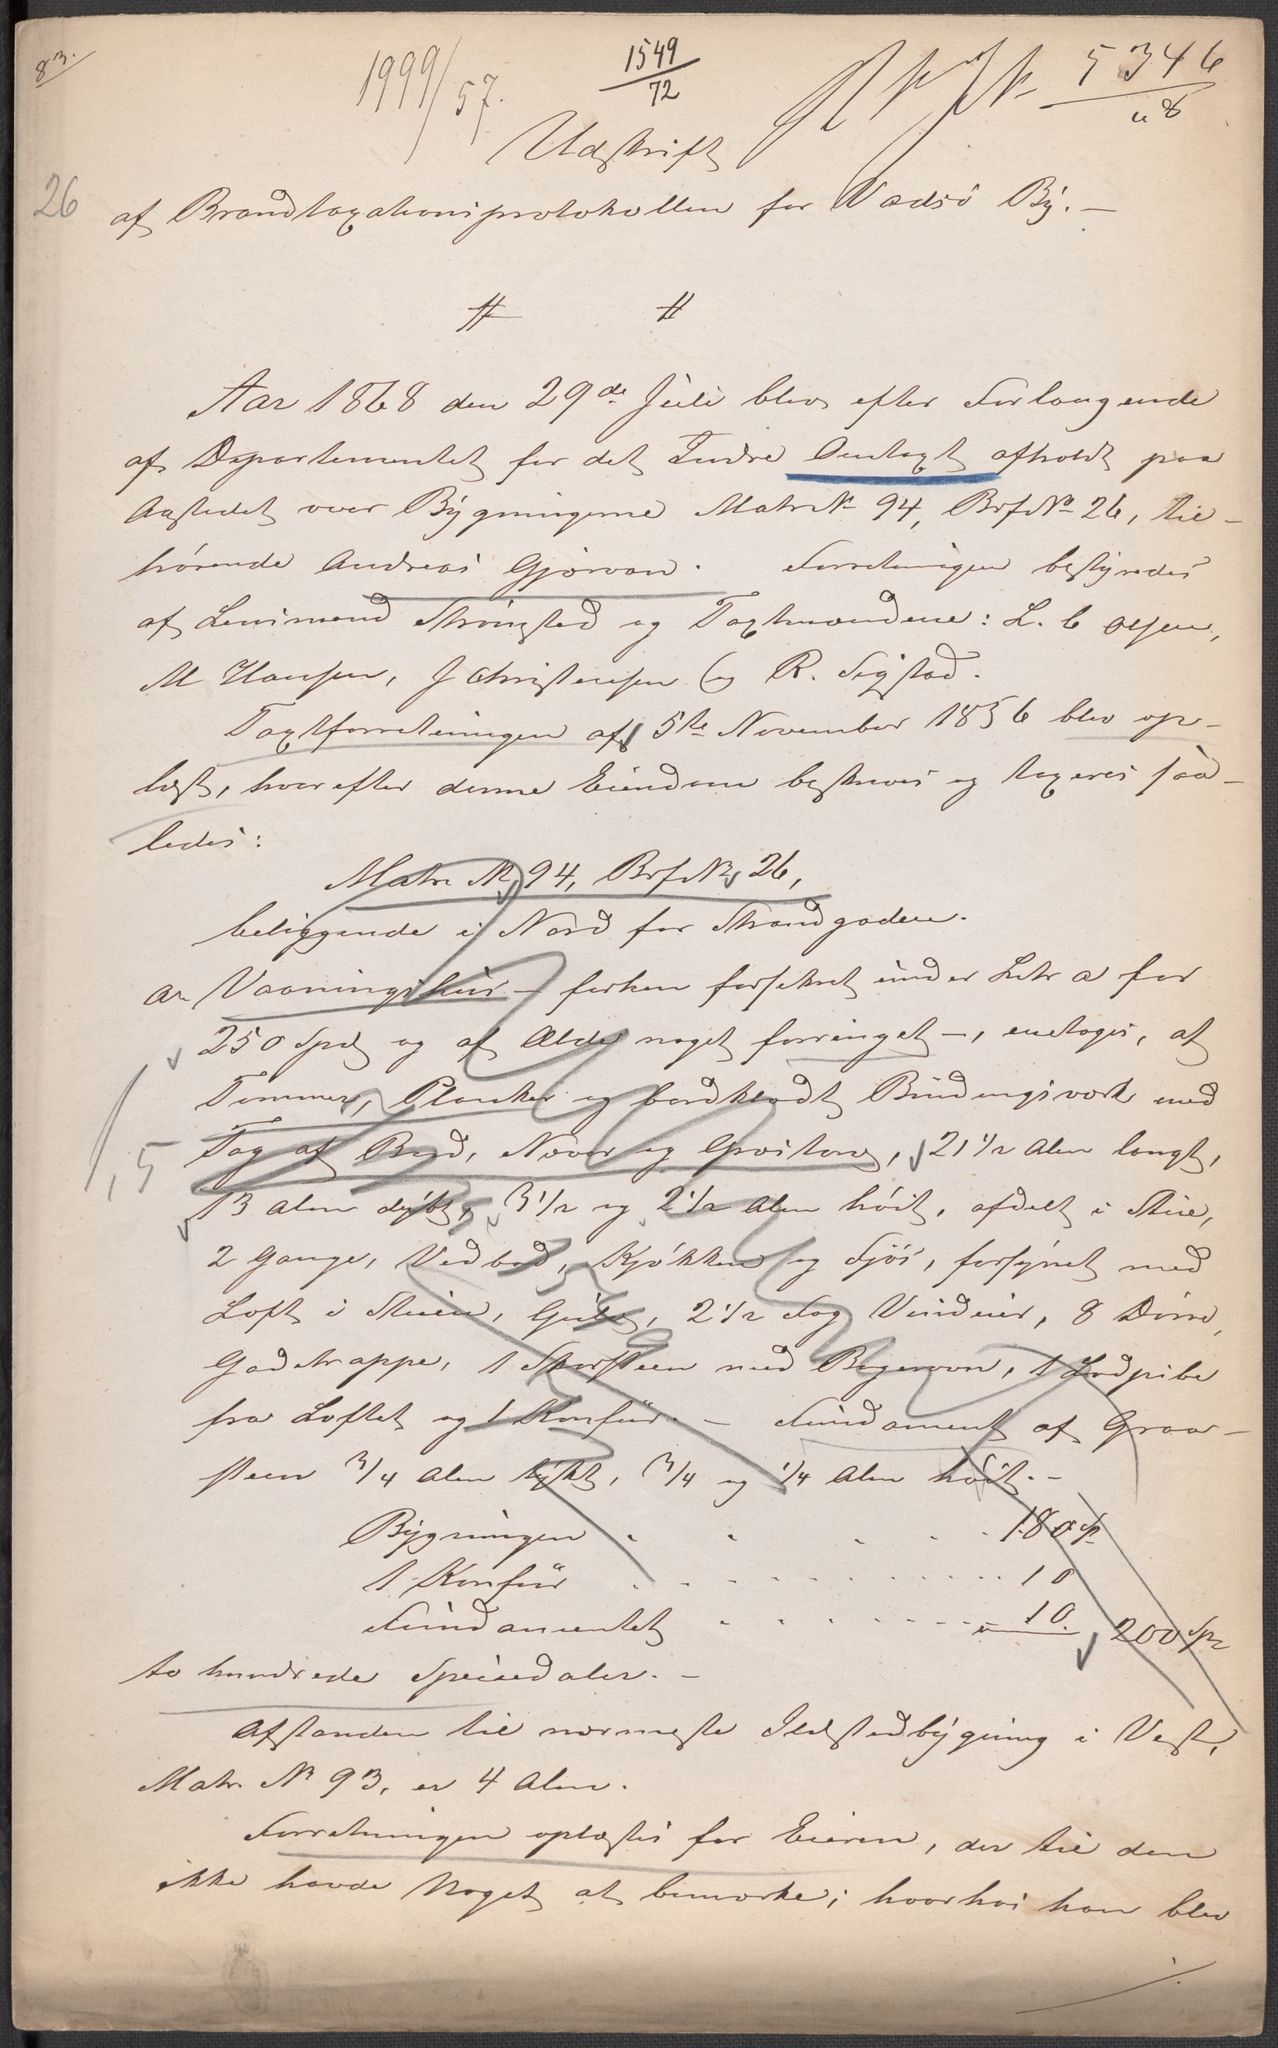 83.
1999/57.
1549/72
5346/68
26
Udskrift
af Brandtaxationsprotokollen for Vadsö By. —
Aar 1868 den 29de Juli blev efter Forlangende
af Departementet for det Indre Omtaxt afholdt paa
Aastedet over Bygningerne Matr № 94, Brf. № 26, til-
hörende Andreas Gjörvan. Forretningen bestyredes
af Lensmand Strömsted og Taxtmændene: L. C Olsen,
M Hansen, J Christensen og R. Sigstad.
Taxtforretningen af 5te November 1856 blev op-
læst, hvorefter denne Eiendom beskreves og taxeres saa-
ledes:
Matr № 94, Brf. № 26,
beliggende i Nord for Strandgaden.
a, Vaaningshus — forhen forsikret under Litr a for
250 Spd og af Ælde noget forringet —, enetages, af
Tømmer, Planker og bordklædt Bindingsværk med
1,5
Tag af Bord, Næver og Græstorv, 21 1/2 Alen langt,
13 Alen dybt, 3 1/2 og 2 1/2 Alen höit, afdelt i Stue,
2 Gange, Vedbod, Kjökken og Fjös, forsynet med
Loft i Stuen, Gulv, 2 1/2 Fag Vinduer, 8 Dörre,
Gadetrappe, 1 Skorsteen med Bagerovn, 1 Lodpibe
fra Loftet og 1 Komfur. — Fundament af Graa-
steen 3/4 Alen tykt, 3/4 og 1/4 Alen höit. —
Bygningen . . . . . 180 Sp
1 Komfur . . . . . . 10
Fundamentet . . . . . " 10. 200 Spd
to hundrede Speciedaler. —
Afstanden til nærmeste Ildstedbygning i Vest,
Matr № 93, er 4 Alen.
Forretningen oplæstes for Eieren, der til den
ikke havde Noget at bemærke; hvorhos han blev